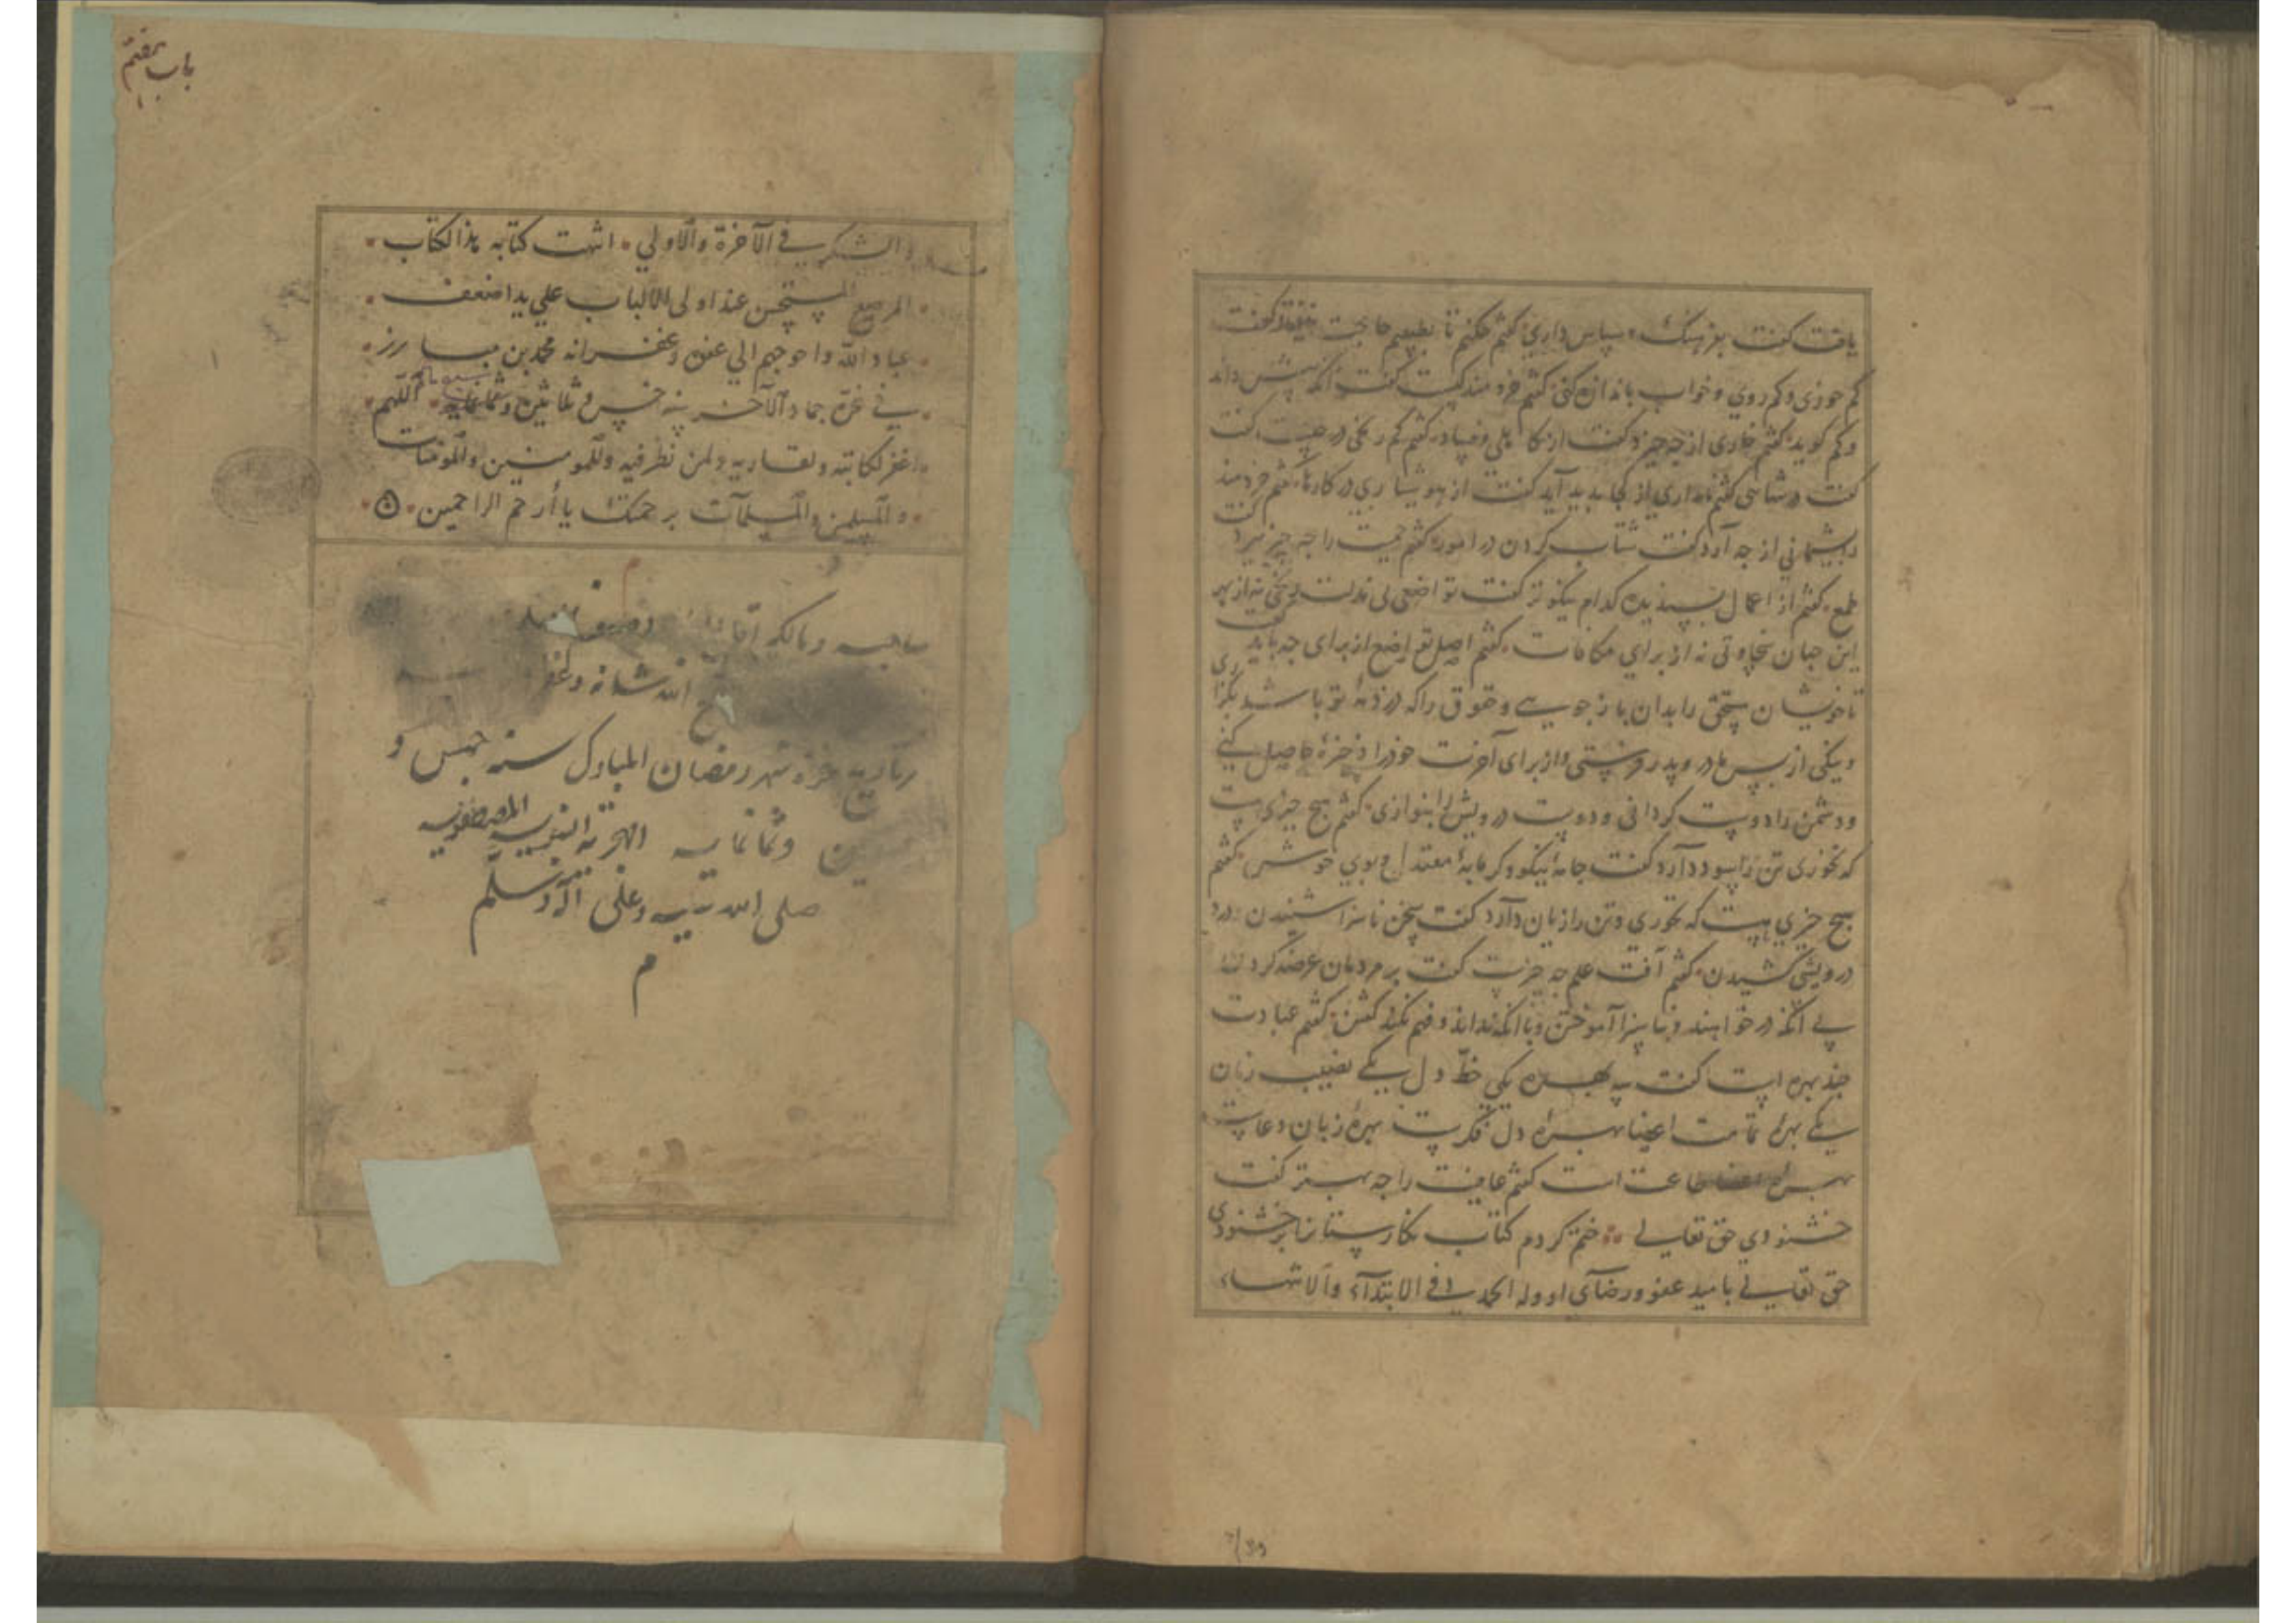 یافت کفت بفرهنک و سپاس داری کفتم چکنم تا بطبیبم حاجت نیفتد کفت
کم خوری و کم روی و خواب باندازه کنی کفتم خردمند کیست کفت آنکه بیش داند
وکم کوید کفتم خواری از چه خیزد کفت از کاهلی و فساد کفتم کم رنجی در چیست کفت
کفت در شناسی کفتم نداری از کجا بدید آید کفت از هوشیاری در کارها کفتم خردمند
را بشیمانی از چه آرد کفت شتاب کردن در امور کفتم حمیت را چه چیز ببرد کفت
طمع کفتم از اعمال بسندیده کدام نیکوتر کفت تواضعی بی مذلت و رنجی نه از بهر
این جهان سخاوتی نه از برای مکافات کفتم اصل تواضع از برای چه باشد کفت
تا خویشان مستحق را بدان باز جویی و حقوق را که در ذمه تو باشد بکزاری
ونیکی از بس مادر و پدر فرستی و از برای آخرت خود را ذخیره حاصل کنی
و دشمن را دوست کردانی و دوست درویش را بنوازی کفتم هیچ چیزی هست
که نخوری تن را سود دارد کفت جامه نیکو و کرمابه معتدل و بوی خوش کفتم
هیچ چیزی هست که نخوری و تن را زیان دارد کفت سخن ناسزا شنیدن و درد
درویشی کشیدن کفتم آفت علم چه چیزست کفت بر مردمان عرضه کردن
بی آنکه در خواهند و ناسزا آموختن و با آنکه نداند و فهم نکند کفتن کفتم عبادت
چند بهره است کفت سه بهره یکی حظ دل یکی نصیب زبان
یکی بهره تمامت اعضا بهره دل فکرست بهره زبان دعاست
بهره اعضا طاعت است کفتم عاقبت را چه بهتر کفت
خشنودی حق تعالی ختم کردم کتاب نکارستان را بر خشنودی
حق تعالی بامید عفو و رضای او وله الحمد فی الابتدآء والانتهاء
باب هفتم
والشکر فی الآخرة والاولی اتمت کتابه هذا الکتاب
المرصع المستحسن عند اولی الالباب علی ید اضعف
عباد الله واحوجهم الی عفوه وغفرانه محمد بن مبارز
فی غرة جماد الآخر سنه خمس و ثلاثین و ثمانمایه اللهم
اغفر لکاتبه ولقاریه ولمن نظر فیه وللمومنین والمومنات
والمسلمین والمسلمات برحمتک یا أرحم الراحمین
صاحبه ومالکه
الله شانه و
بتاریخ غره شهر رمضان المبارک سنه خمس و
وثمانمایه الهجریه النبویه المصطفویه
صلی الله علیه وعلی آله وسلم
م